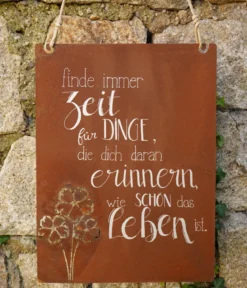 finde immer
Zeit
für DINGE,
die dich daran
erinnern,
wie SCHÖN das
Leben ist.